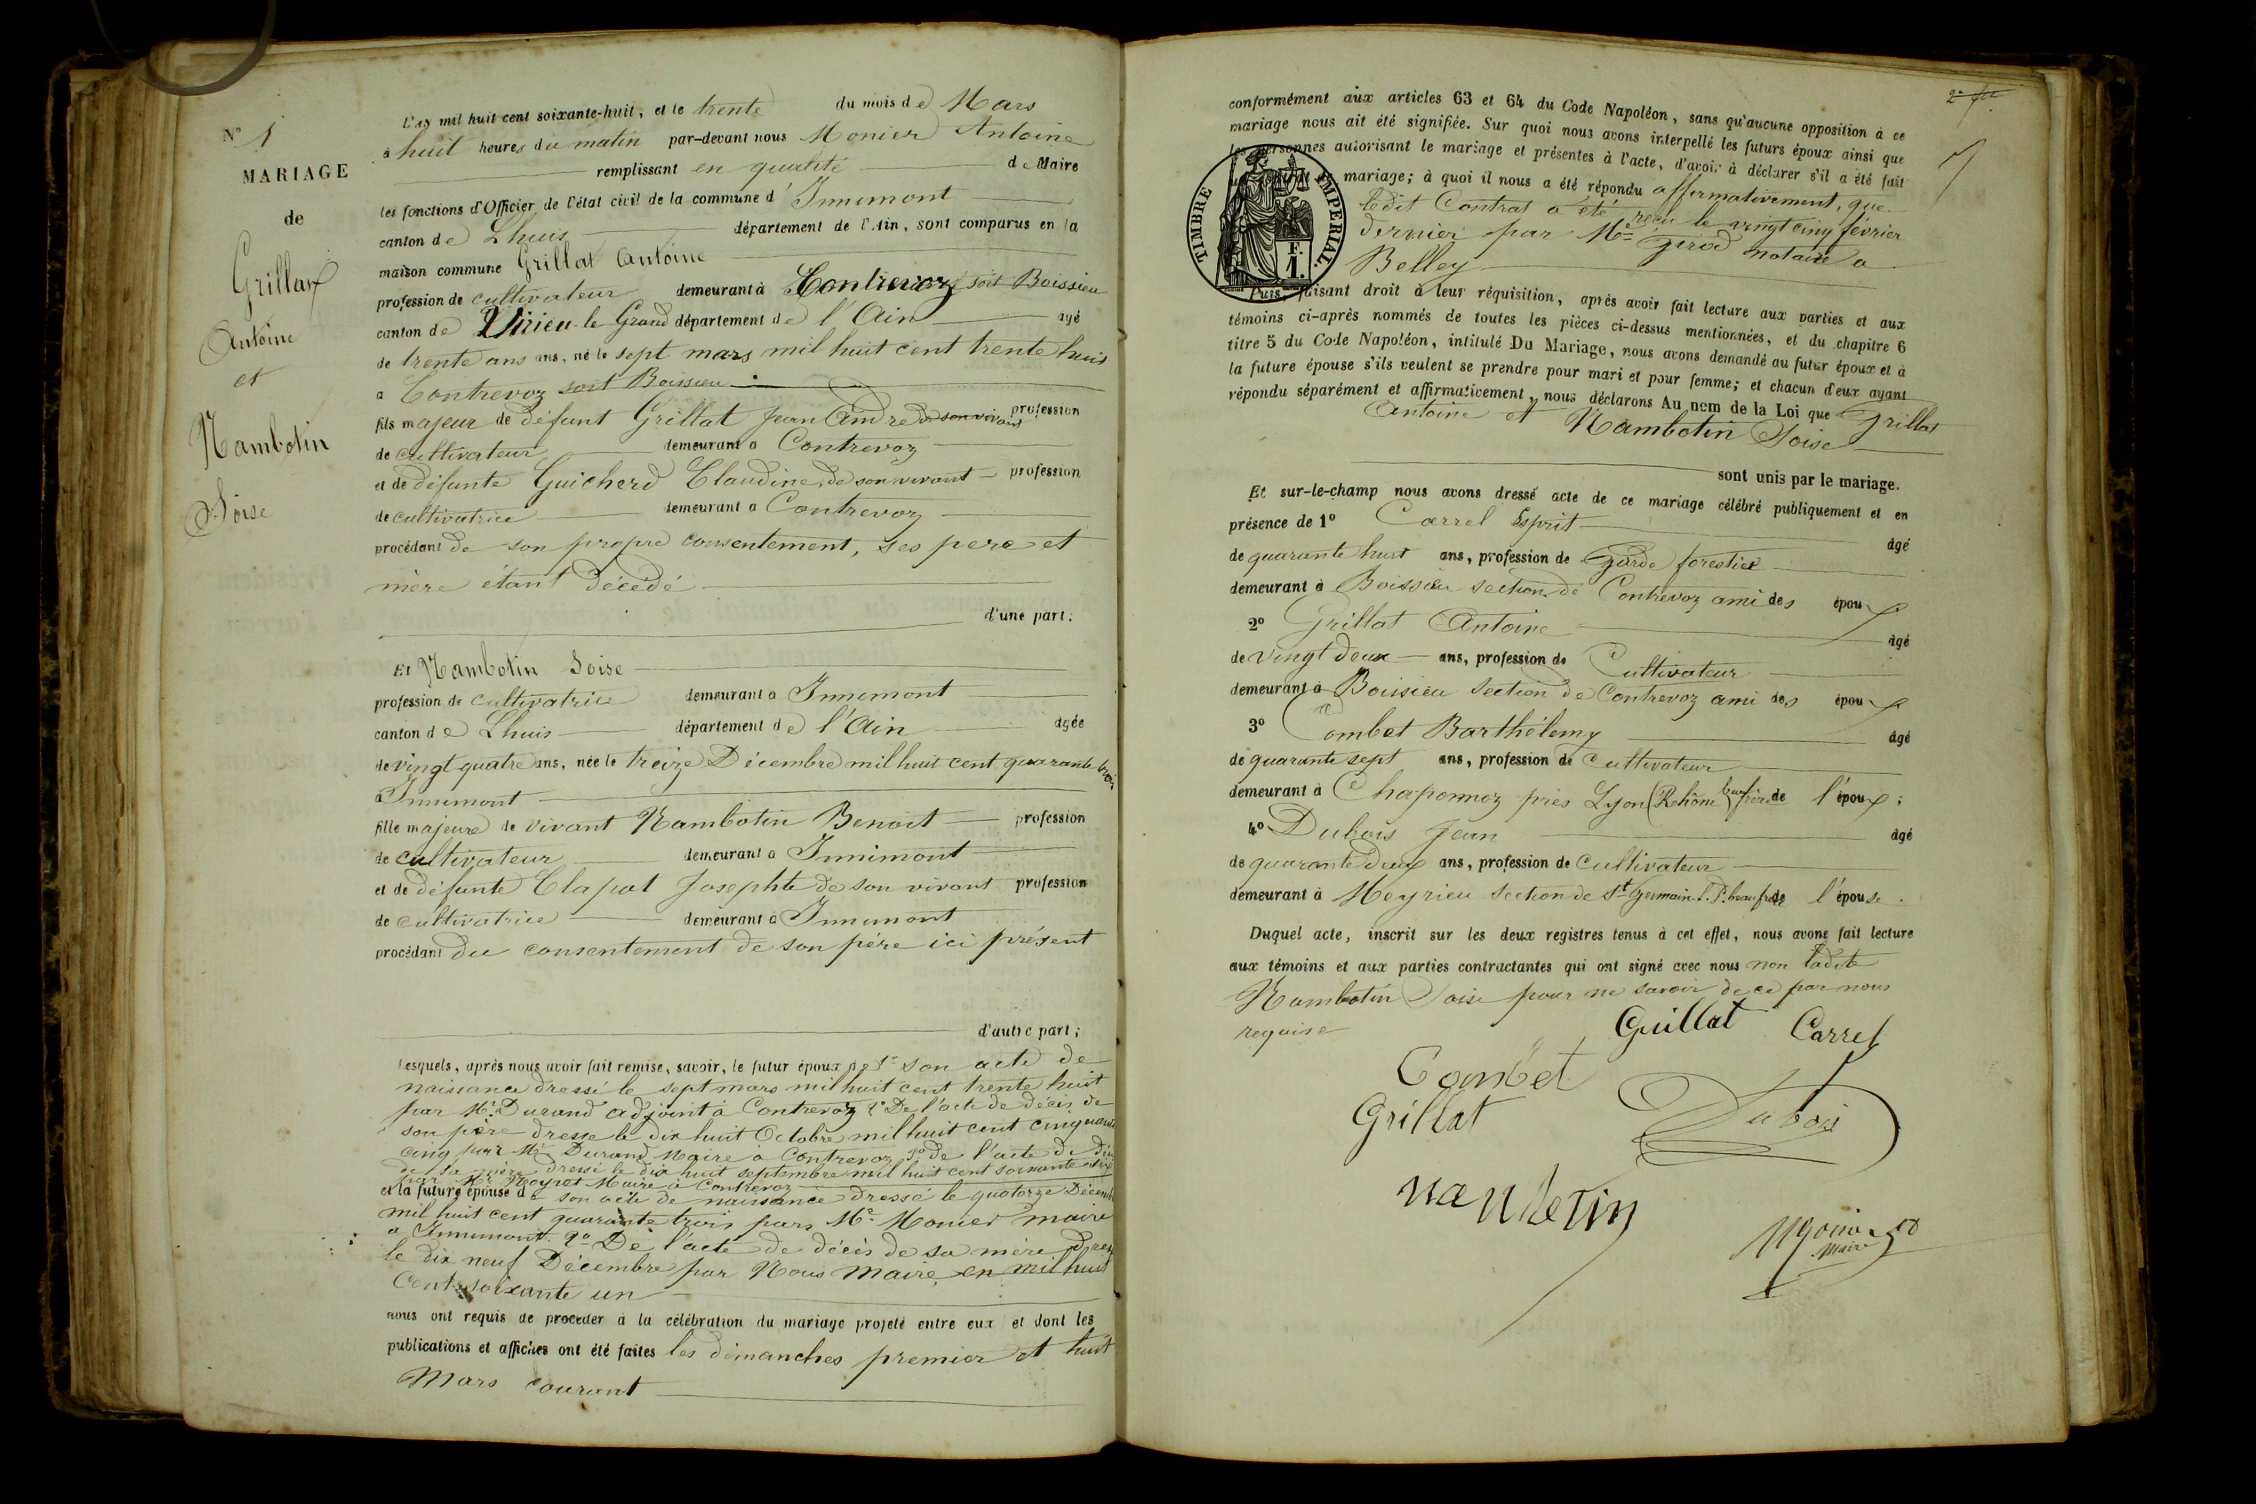 N° 1
MARIAGE
de
Grillat
Antoine
et
Nambotin
Soise
L'an mil huit cent soixante-huit, et le trente du mois de Mars
à huit heures du matin par-devant nous Monier Antoine
remplissant en qualité de Maire
les fonctions d'Officier de l'état civil de la commune d'Innimont
canton de Lhuis département de l'Ain, sont comparus en la
maison commune Grillat Antoine
profession de cultivateur demeurant à Contrevoz soit Boissieu
canton de Virieu-le Grand département de l'Ain agé
de trente ans ans, né le sept mars mil huit cent trente huit
à Contrevoz soit Boissieu
fils majeur de défunt Grillat Jean André de son vivant profession
de cultivateur demeurant a Contrevoz
et de défunte Guicherd Claudine, de son vivant profession
de cultivatrice demeurant a Contrevoz
procédant de son propre consentement, ses pere et
mère étant décédé
d'une part;
Et Nambotin Soise
profession de cultivatrice demeurant a Innimont
canton de Lhuis département de l'Ain agée
de vingt quatre ans, née le treize Décembre mil huit cent quarante trois
à Innimont
fille majeure de vivant Nambotin Benoit profession
de cultivateur demeurant a Innimont
et de défunte Clapot Josephte de son vivant profession
de cultivatrice demeurant à Innimont
procédant du consentement de son père ici présent
d'autre part;
lesquels, après nous avoir fait remise, savoir, le futur époux de 1° son acte de
naissance dressé le sept mars mil huit cent trente huit
par Mr. Durand adjoint à Contrevoz 2° De l'acte de décès de
son père dresse le dix huit Octobre mil huit cent cinquante
cinq par Mr Durand Maire à Contrevoz 3° de l'acte de décès
de sa mère dressé le dix huit septembre mil huit cent soixante
par Mr Maire à Contrevoz
et la future épouse de son acte de naissance dressé le quatorze Décembre
mil huit cent quarante trois pars Mr. Monier maire
a Innimont. 2° De l'acte de décès de sa mère dressé
le dix neuf Décembre par Nous maire, en mil huit
Cent soixante un
nous ont requis de procéder à la célébration du mariage projeté entre eux et dont les
publications et affiches ont été faites les dimanches premier et huit
Mars courant
conformément aux articles 63 et 64 du Code Napoléon, sans qu'aucune opposition à ce
mariage nous ait été signifiée. Sur quoi nous avons interpellé les futurs époux ainsi que
les personnes autorisant le mariage et présentes à l'acte, d'avoir à déclarer s'il a été fait
mariage; à quoi il nous a été répondu affirmativement, que
ledit Contrat a été reçu le vingt cinq février
dernier par Me Girod notaire a
Belley
TIMBRE IMPERIAL.
F.
1.
Puis, faisant droit à leur réquisition, après avoir fait lecture aux parties et aux
témoins ci-après nommés de toutes les pièces ci-dessus mentionnées, et du chapitre 6
titre 5 du Code Napoléon, intitulé Du Mariage, nous avons demandé au futur époux et à
la future épouse s'ils veulent se prendre pour mari et pour femme; et chacun d'eux ayant
répondu séparément et affirmativement, nous déclarons Au nom de la Loi que Grillat
Antoine et Nambotin Soise
sont unis par le mariage.
Et sur-le-champ nous avons dressé acte de ce mariage célébré publiquement et en
présence de 1° Carrel Esprit agé
de quarante huit ans, profession de Garde forestier
demeurant à Boissieu section de Contrevoz ami des époux
2° Grillat Antoine agé
de vingt deux ans, profession de Cultivateur
demeurant à Boissieu section de Contrevoz ami des époux
3° Combet Barthélemy agé
de quarante sept ans, profession de Cultivateur
demeurant à Chaponnoz près Lyon (Rohône beau frère de l'époux;
4° Dubois Jean agé
de quarante deux ans, profession de Cultivateur
demeurant à Meyrieu section de St Germain-l.P. beau frère de l'épouse.
Duquel acte, inscrit sur les deux registres tenus à cet effet, nous avons fait lecture
aux témoins et aux parties contractantes qui ont signé avec nous non ladite
Nambotin Soise pour ne savoir de ce par nous
requise
Grillat Carrel
Combet
Grillat Dubois
nanbotin
Monier
Maire